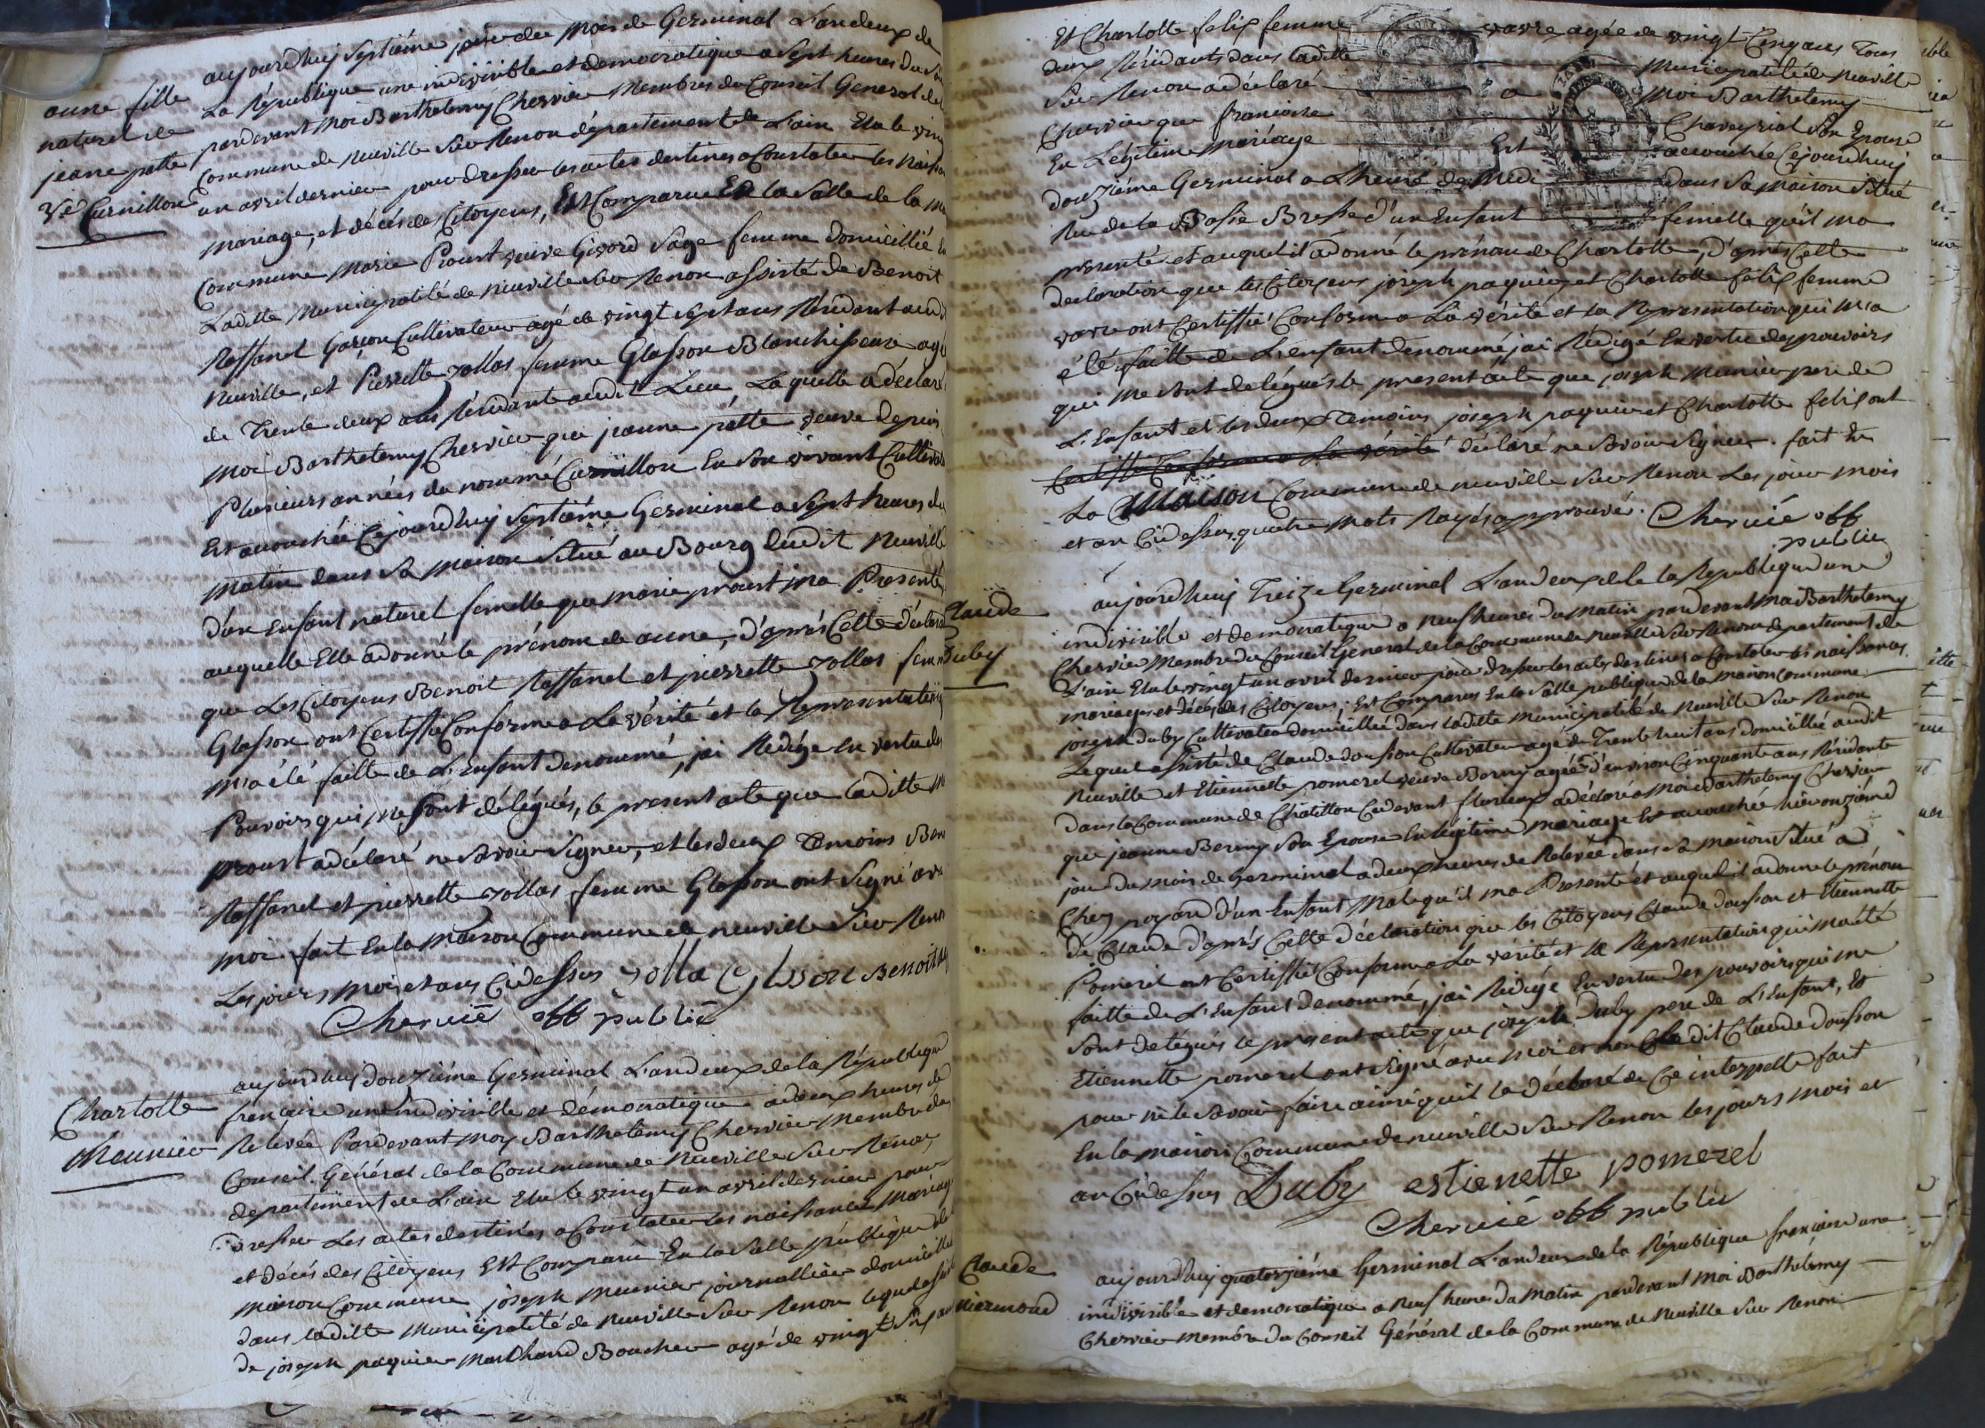 anne fille
naturel de
jeane patte
Ve Curnillon
aujourdhuy septième jour du mois de Germinal L'an deux de
La République une indivisible et democratique a sept heures du
pardevant moi Barthelemy Chervier Membres du Conseil General de
Commune de neuville sur Renon département de L'ain Elu le vingt
un avril dernier pour dresser les actes destinés a Constater les
mariage, et décès des Citoyens, Est Comparue En la Salle de la
Commune Marie Proust veuve Givord Sage femme domiciliée
Laditte Municipalité de neuville sur Renon assisté de Benoit
Raffanel Garçon Cultivateur agé de vingt sept ans Résidant audit
neuville, et Pierrette zollas femme Glasson Blanchisseuse agée
de Trente deux ans Résidante audit Lieu Laquelle a déclaré
Moi Barthelemy Chervier que jeanne patte veuve depuis
Plusieurs années du nommé Curnillon En son vivant
Est accouchée Cejourdhuy septième Germinal a sept heures du
matin dans sa maison situé au Bourg dudit neuville
d'un Enfant naturel femelle que marie proust ma Presenté
auquelle Elle a donné le prénom de anne, d'après Cette
que Les Citoyens Benoit Raffanel et pierrette zollas
Glasson ont Certiffié Conforme a La vérité et la
m'a été faitte de L'Enfant denommé, j'ai Rédigé En vertu des
Pouvoirs qui me sont délégués, le present acte que laditte
proust a déclaré ne savoir signer, et les deux Temoins
Raffanel et pierrette zollas femme Glasson ont signé avec
moi fait En la maison Commune de neuville sur Renon
Les jours mois et ans Cidessus zolla Benoit
Chervié off public
Charlotte
Meunier
aujourdhuy douzième Germinal L'an deux de la République
française une indivisible et démocratique a deux heures de
Relevée Pardevant moy Barthelemy Chervier Membre du
Conseil Général de la Commune de neuville sur Renon,
departement de L'ain Elu le vingt un avril dernier pour
dresser Les actes destinés a Constater les naissances mariages
et décès des Citoyens Est Comparu En la Salle publique de
maison Commune joseph meunier journallier domicilié
dans laditte municipalité de neuville sur Renon
de joseph paquier marchand Boucher agé de vingt
Et Charlotte felix femme vavre agée de vingt Cinq ans Tous
deux Résidants dans laditte Municipalité de neuville
sur Renon a déclaré a Moi Barthelemy
Chervier que françoise Chaveyriat Son Epouse
En Légitime mariage Est accouchée Cejourdhuy
douzième Germinal a L'heure de Medi dans sa maison situé
Rue de la Basse Bresse d'un Enfant femelle qu'il ma
présenté et auquel il a donné le prénom de Charlotte, d'après Cette
declaration que les Citoyens joseph paquier et Charlotte felix femme
vavre ont Certiffié Conforme a La vérité et la Representation qui m'a
été faitte de L'enfant denommé j'ai Rédigé En vertu des pouvoirs
qui me sont delégués le present acte que joseph meunier pere de
L'Enfant et les deux Temoins joseph paquier et Charlotte felix ont
Certiffié Conforme a La vérité déclaré ne savoir signer. fait En
La Maison Commune de neuville sur Renon Les jour mois
et an Cidessus quatre mots Rayés approuvés. Chervié off
public
Claude
Duby
aujourdhuy Treize Germinal L'an deux de la République une
indivisible et democratique a neuf heures du matin pardevant moi Barthelemy
Chervier Membre du Conseil General de la Commune de neuville sur Renon departement de
L'ain Elu le vingt un avril dernier pour dresser les actes destinés a Constater les naissances,
mariages et décès des Citoyens; Est Comparus En la Salle publique de la maison Commune
joseph Duby Cultivateur domicilié dans laditte municipalité de neuville sur Renon
Lequel assisté de Claude dousson Cultivateur agé de Trente huit ans domicilié audit
neuville et Etiennette pomerel veuve Berny agée d'environ Cinquante ans Résidante
dans la Commune de Chatillon Cidevant a déclaré a Moi Barthelemy Chervier
que jeanne Berny Son Epouse En Légitime mariage Est accouchée hier onzième
jour du mois de Germinal a deux heures de Relevée dans sa maison situé a
Chez poyard d'un Enfant Male qu'il ma Presenté et auquel il a donné le prénom
de Claude d'après Cette déclaration que les Citoyens Claude dousson et Etiennette
Pomerel ont Certiffié Conforme a La vérité et la Representation qui m'a été
faitte de L'Enfant denommé, j'ai Rédigé En vertu des pouvoirs qui me
sont delégués le present acte que joseph Duby pere de L'Enfant, Et
Etiennette pomerel ont signé avec moi et non le dit Claude dousson
pour ne le savoir faire ainsi qu'il la déclaré de Ce interpellé fait
En la maison Commune de neuville sur Renon les jours mois et
an Cidessus Duby estienette pomerel
Chervié off public
Claude
Niermond
aujourdhuy quatorzième Germinal L'an deux de la République française une
indivisible et democratique a neuf heures du matin pardevant moi Barthélemy
Chervier membre du Conseil Général de la Commune de neuville sur Renon